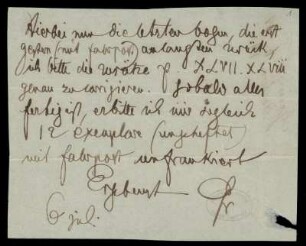 Hierbei nur die letzten bogen, die erst
gestern (mit fahrpost) anlangten zurück,
ich bitte die zusätze p XLVII. XLVIII
genau zu corrigieren. sobald alles
fertig ist, erbitte ich mir zugleich
12 exemplare (ungeheftet)
mit fahrpost unfrankiert
Ergebenst Gr
6 juli